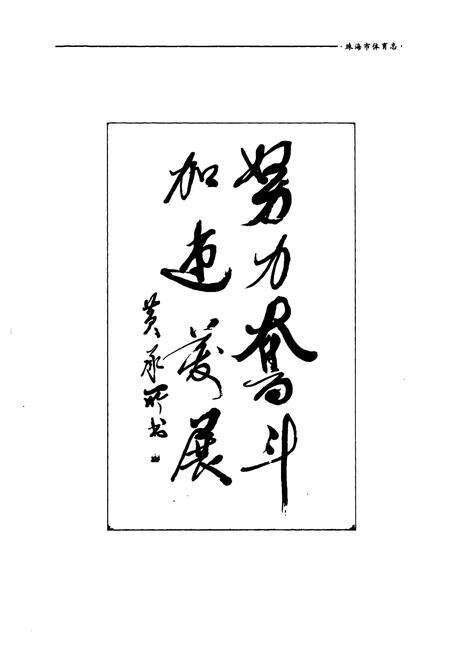 ·珠海市体育志·
努力奋斗
加速发展
黄承 书